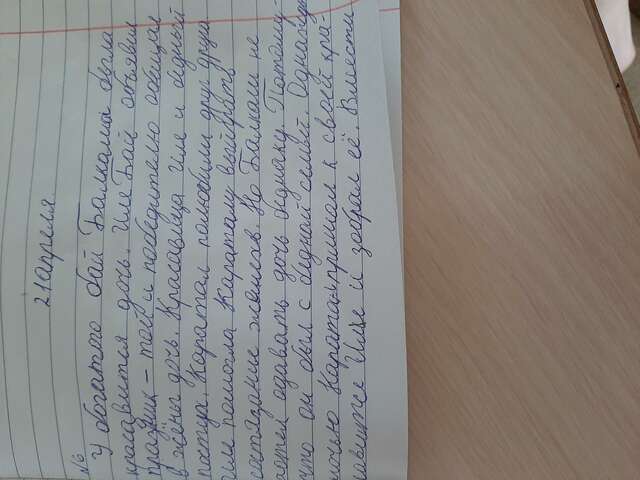 21 апреля.
№6
У богатого бай Балкаша была
красавится дочь. Иле Бай объявил
праздник - той и победителю обещал
в жёны дочь. Красавица Иле и бедный
пастух Каратал полюбили друг друга
Иле помогла Караталу выйграть
состязание женихов. Но Балкаш не
хотел одавать дочь бедняку. Потому-
что он был с бедной семьи. Однажды
ночью Каратал пришол к своей кра-
савитсе Иле и забрал её. Вместе